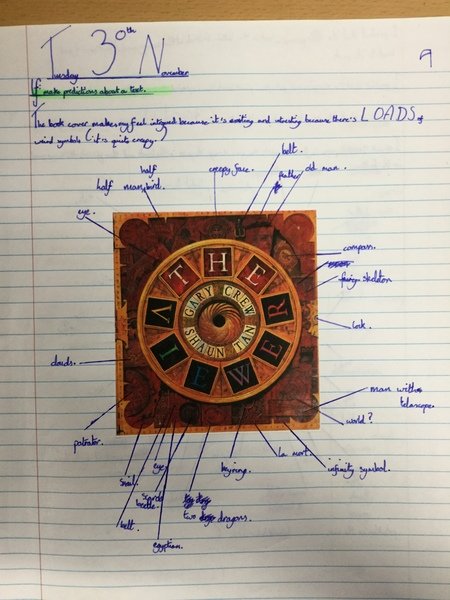 Tuesday 30th November
9
make predictions about a text.
The book cover makes my feel intriged because it's exiting and intresting because there's LOADS of
weird symbols (it's quite creepy.)
belt.
half creepy face. feather old man.
half man, bird.
eye.
compass.
fairy skeleton
THE
GARY CREW
SHAUN TAN
VIEWER
lock.
clouds.
man with
telascope.
world?
potrater.
la mort.
infinity symbol.
snail. eye keyrings.
scarab
beetle.
two dragons.
belt.
egyptian.